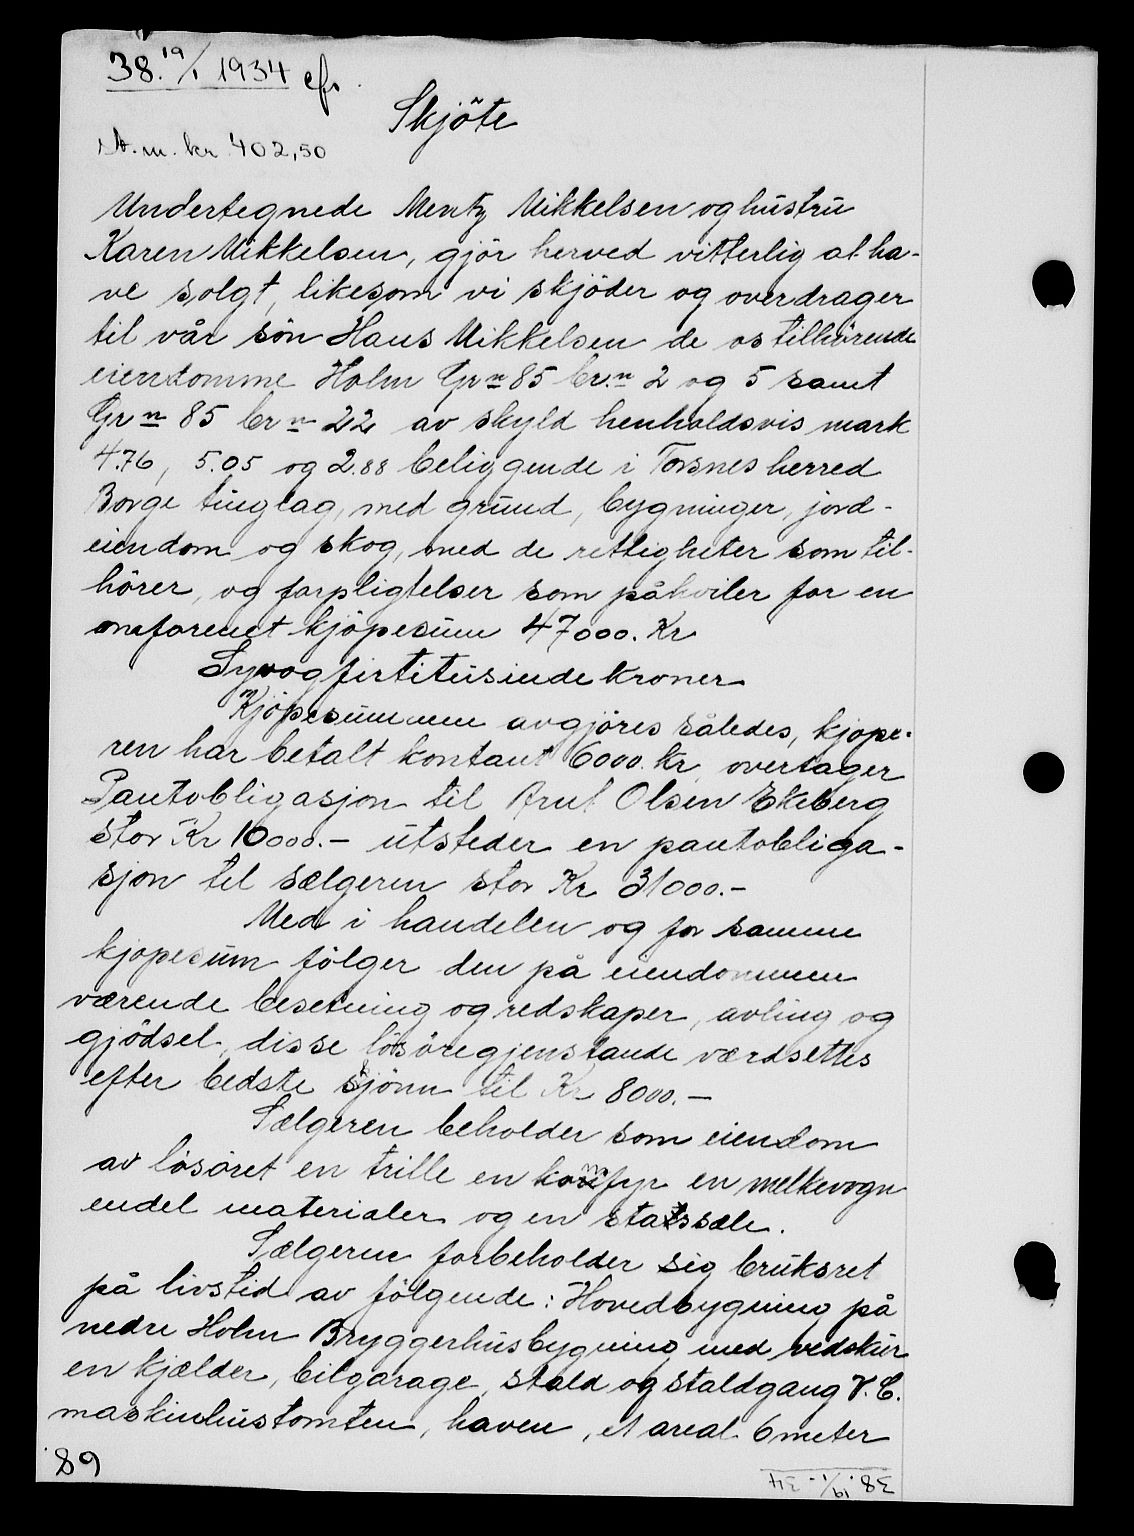 38. 19/1 1934 efs.
Skjöte
St.m. kr. 402,50
Undertegnede Mentz Mikkelsen og hustru
Karen Mikkelsen, gjör herved vitterlig at ha-
ve solgt, likesom vi skjöder og overdrager
til vår sön Hans Mikkelsen de os tilhörende
eiendomme Holm Grn 85 br.n 2 og 5 samt
Grn 85 brn 22 av skyld henholdsvis mark
4.76, 5.05 og 2.88 beliggende i Torsnes herred
Borge tinglag, med grund, bygninger, jord-
eiendom og skog, med de rettigheter som til-
hörer, og forpligtelser som påhviler for en
omforenet kjöpesum 47000. Kr
Syvogfirtitusinde kroner
Kjöpesummen avgjöres således, kjöpe-
ren har betalt kontant 6000 kr, overtager
Pantobligasjon til Arnt Olsen Ekeberg
stor Kr 10000.- utsteder en pantobliga-
sjon til sælgeren stor Kr 31000.-
Med i handelen og for samme
kjöpesum fölger den på eiendommen
værende besetning og redskaper, avling og
gjödsel, disse lösöregjenstande værdsettes
efter bedste skjönn til Kr 8000.-
Sælgeren beholder som eiendom
av lösöret en trille en komfyr en melkevogn
endel materialer og en stassele.
Sælgeren forbeholder sig bruksret
på livstid av fölgende: Hovedbygning på
nedre Holm Bryggerhusbygning med vedskur
en kjælder, bilgarage, stald og staldgang V.C.
maskinhustomten, haven, et areal 6 meter
89
38. 19/1 - 34